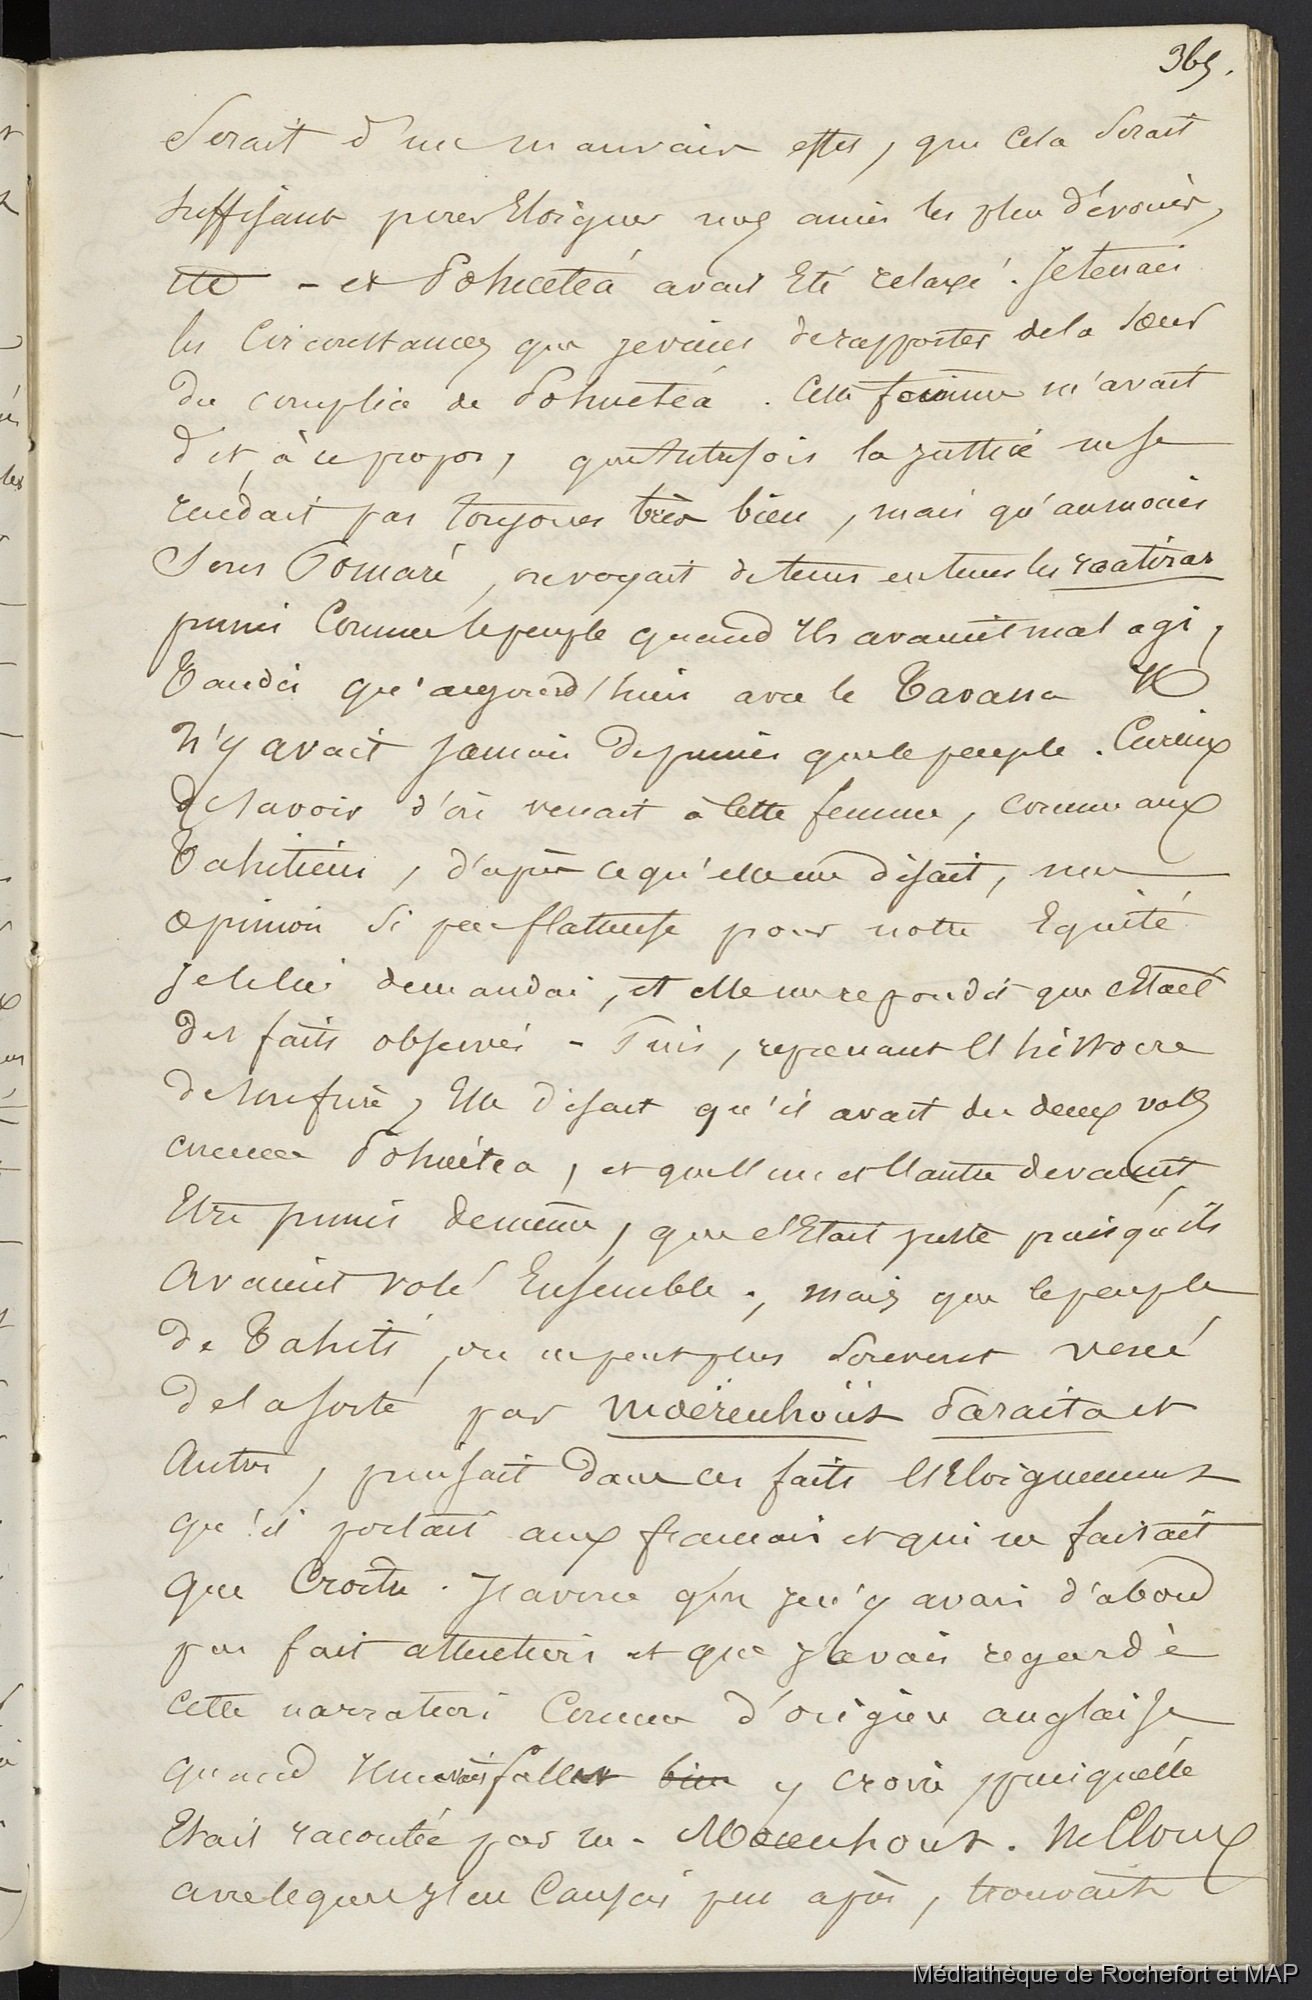 365.
Serait d'un mauvais effet, que cela serait
suffisant pour Eloigner nos amis les plus dévoués,
etc - et Pohuetéa avait Eté relaxé. Je tenais
les Circonstances que je viens de rapporter de la Sœur
du complice de Pohuetéa. Cette femme m'avait
dit, à ce propos, qu'Autrefois la justice ne se
rendait pas toujours très bien, mais qu'au moins
Sous Pomaré, on voyait de tems en tems les raatiras
punis Comme le peuple quand ils avaient mal agi,
Tandis qu'aujourd'hui avec le Tavana
n'y avait jamais de punis que le peuple. Curieux
de savoir d'où venait à Cette femme, comme aux
Tahitiens, d'après ce qu'elle me disait, une
opinion si peu flatteuse pour notre Equité
je le lui demandai, et elle me repondit que c'Etait
des faits observés - Puis, reprenant l'histoire
de son frère, Elle disait qu'il avait de deux vols
comme Pohuétea, et que l'un et l'autre devaient
Etre punis de même, que c'Etait juste puisqu'ils
avaient volé Ensemble; mais que le peuple
de Tahiti, on ne peut plus souvent vexé
de la sorte par Moërenhoüt Paraita et
Autres, puisait dans ces faits l'Eloignement
qu'il portait aux francais et qui ne faisait
que Croitre. J'avoue que je n'y avais d'abord
pas fait attention et que j'avais regardé
cette narration Comme d'origine anglaise
quand il me fallut bien y croire puisqu'elle
Etait racontée par M. Moerenhout.
avec lequel j'en Causais peu après, trouvait